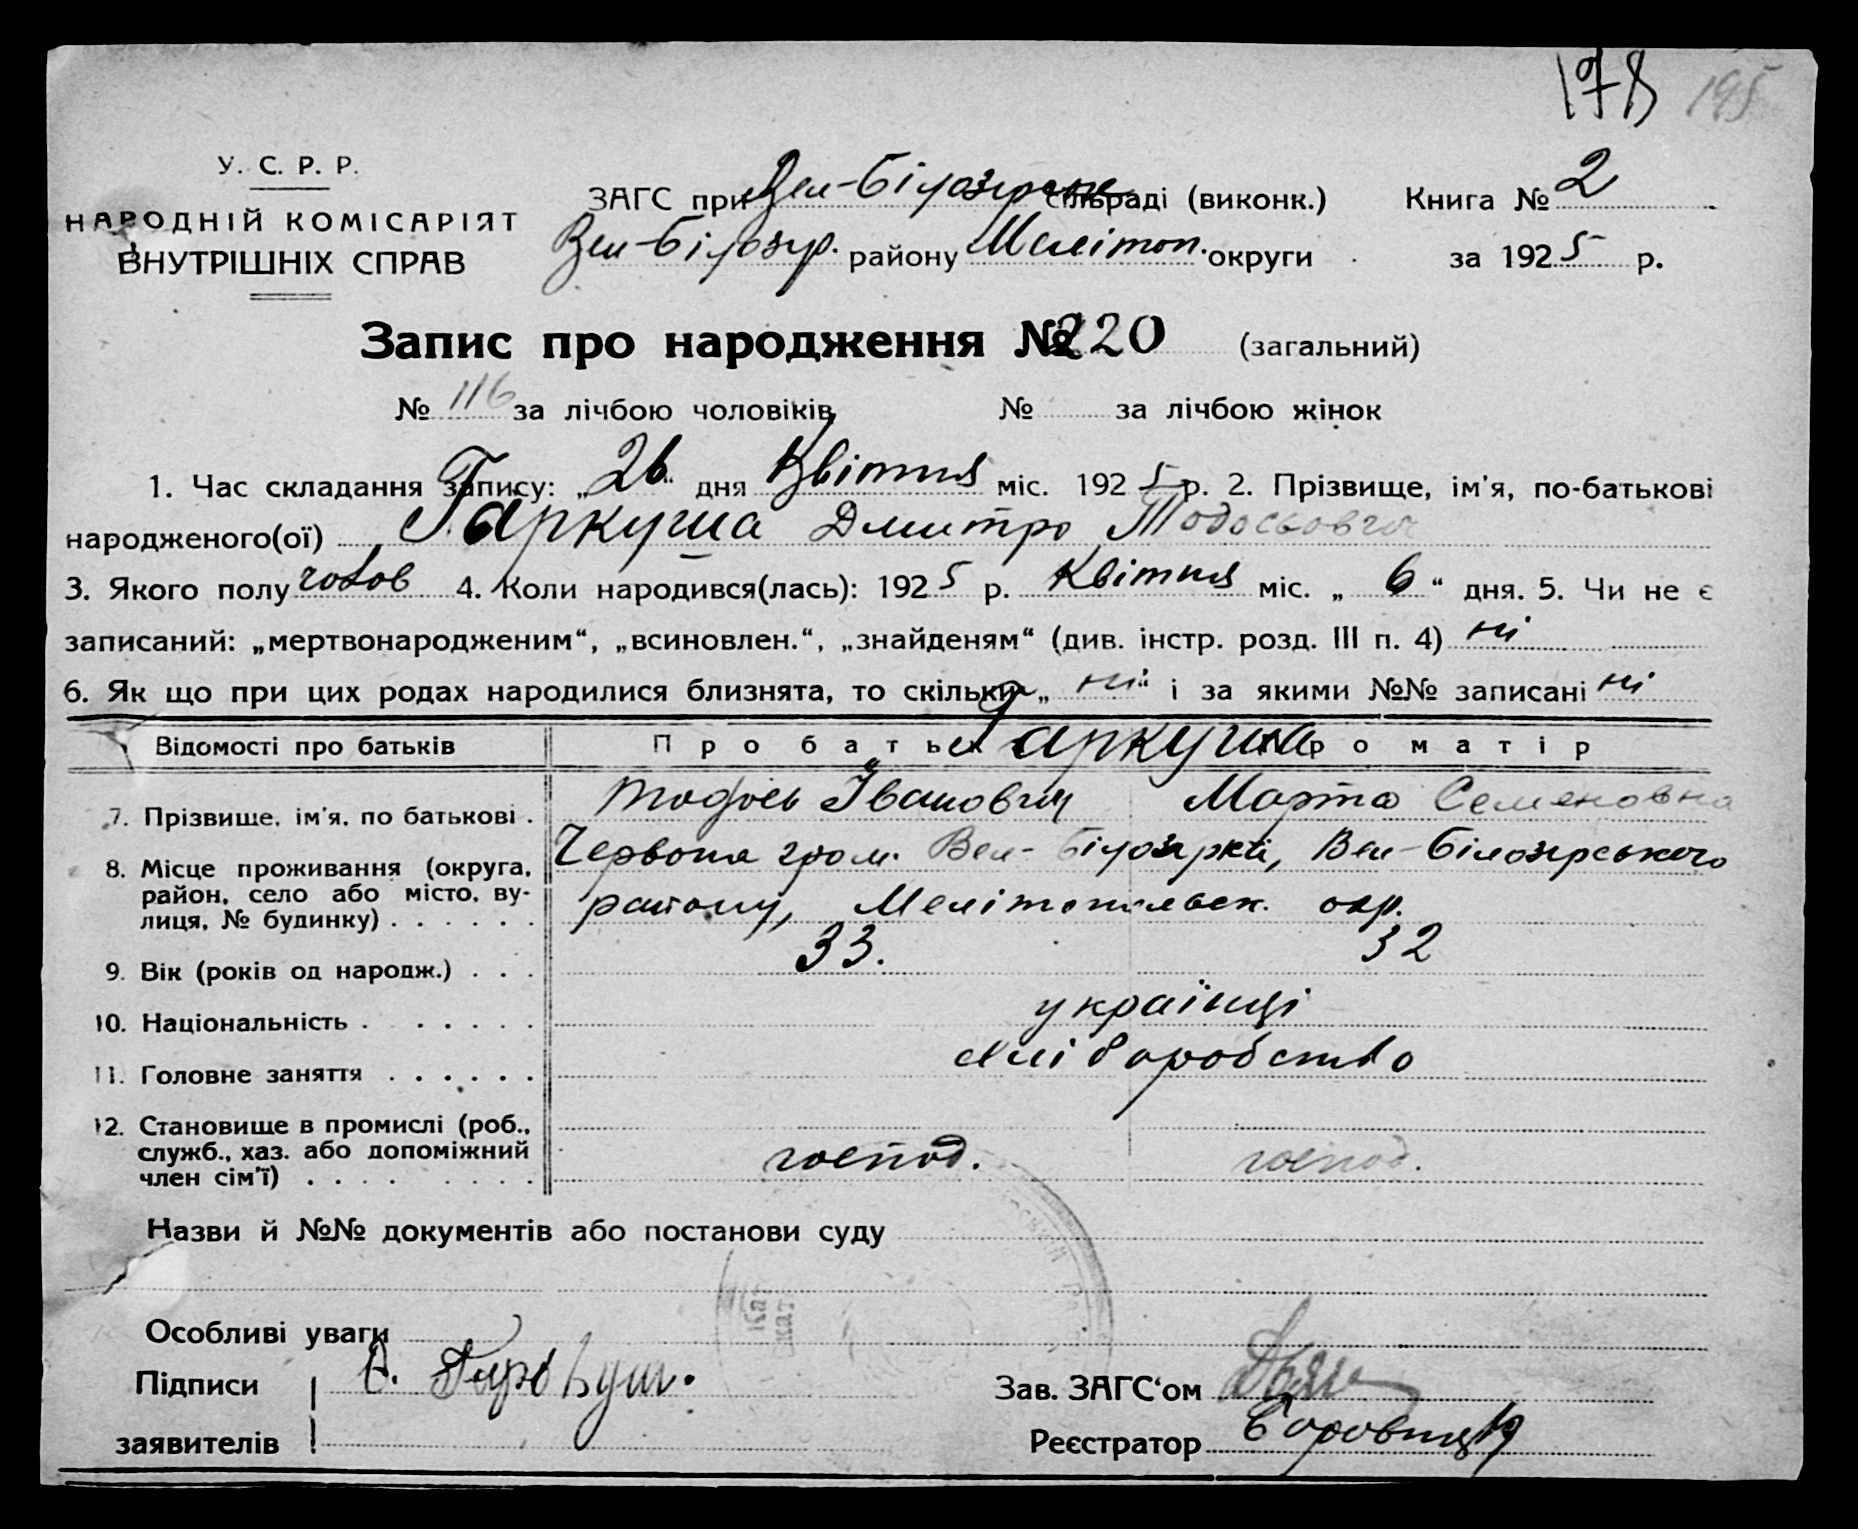 178 195
У. С. Р. Р.
НАРОДНІЙ КОМІСАРІЯТ
ВНУТРІШНІХ СПРАВ
ЗАГС при Вел-Білозірське сільраді (виконк.) Книга № 2
Вел-Білозір. району Мелітоп. округи за 1925 р.
Запис про народження № 220 (загальний)
№ 116 за лічбою чоловіків № за лічбою жінок
1. Час складання запису: „26“ дня Квітня міс. 1925 р. 2. Прізвище, ім'я, по-батькові
народженого(ої) Гаркуша Дмитро Тодосьович
3. Якого полу чолов 4. Коли народився(лась): 1925 р. Квітня міс. „ 6 “ дня. 5. Чи не є
записаний: „мертвонародженим“, „всиновлен.“, „знайденям“ (див. інстр. розд. III п. 4) ні
6. Як що при цих родах народилися близнята, то скільки „ ні “ і за якими №№ записані ні
Відомості про батьків Про батька Гаркуша Про матір
7. Прізвище, ім'я, по батькові . Тодось Іванович Марта Семеновна
8. Місце проживання (округа, район, село або місто, вулиця, № будинку) . . . . . . Червона гром. Вел-Білозірки, Вел-Білозірського
району, Мелітопільськ. окр.
9. Вік (років од народж.) . . . 33. 32
10. Національність . . . . . . . українці
11. Головне заняття . . . . . . хліборобство
12. Становище в промислі (роб., служб., хаз. або допоміжний член сім'ї) . . . . . . . . господ. господ.
Назви й №№ документів або постанови суду
Особливі уваги
Підписи
заявителів
Зав. ЗАГС‘ом
Реєстратор